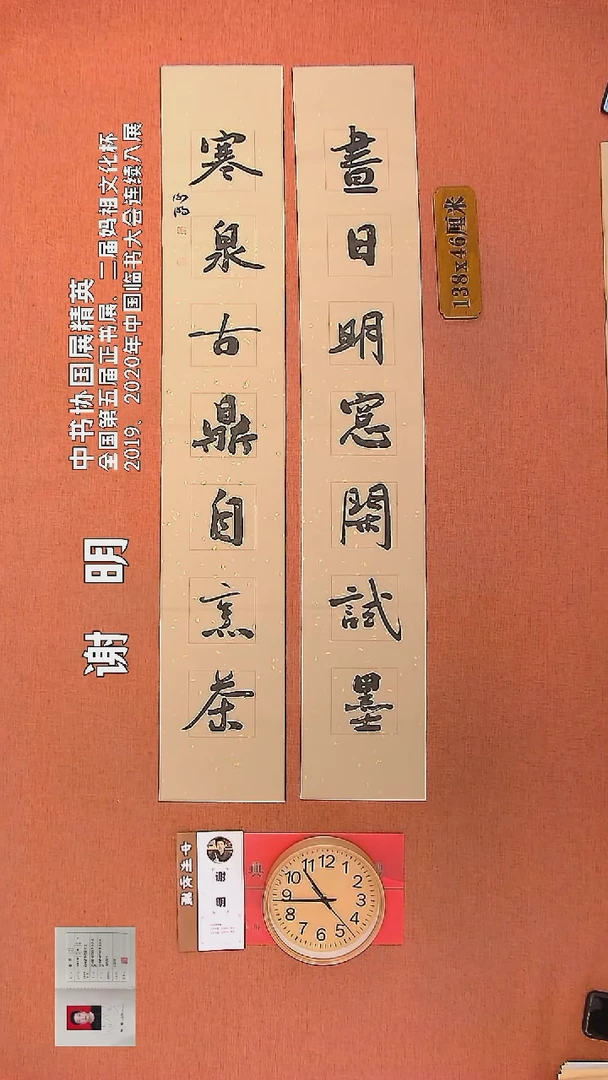 晝日明窓開試墨
寒泉古鼎自烹茶
138x46厘米
中书协国展精英
全国第五届正书展、二届妈祖文化杯
2019、2020年中国临书大会连续入展
谢 明
12
1
2
3
4
5
6
7
8
9
10
11